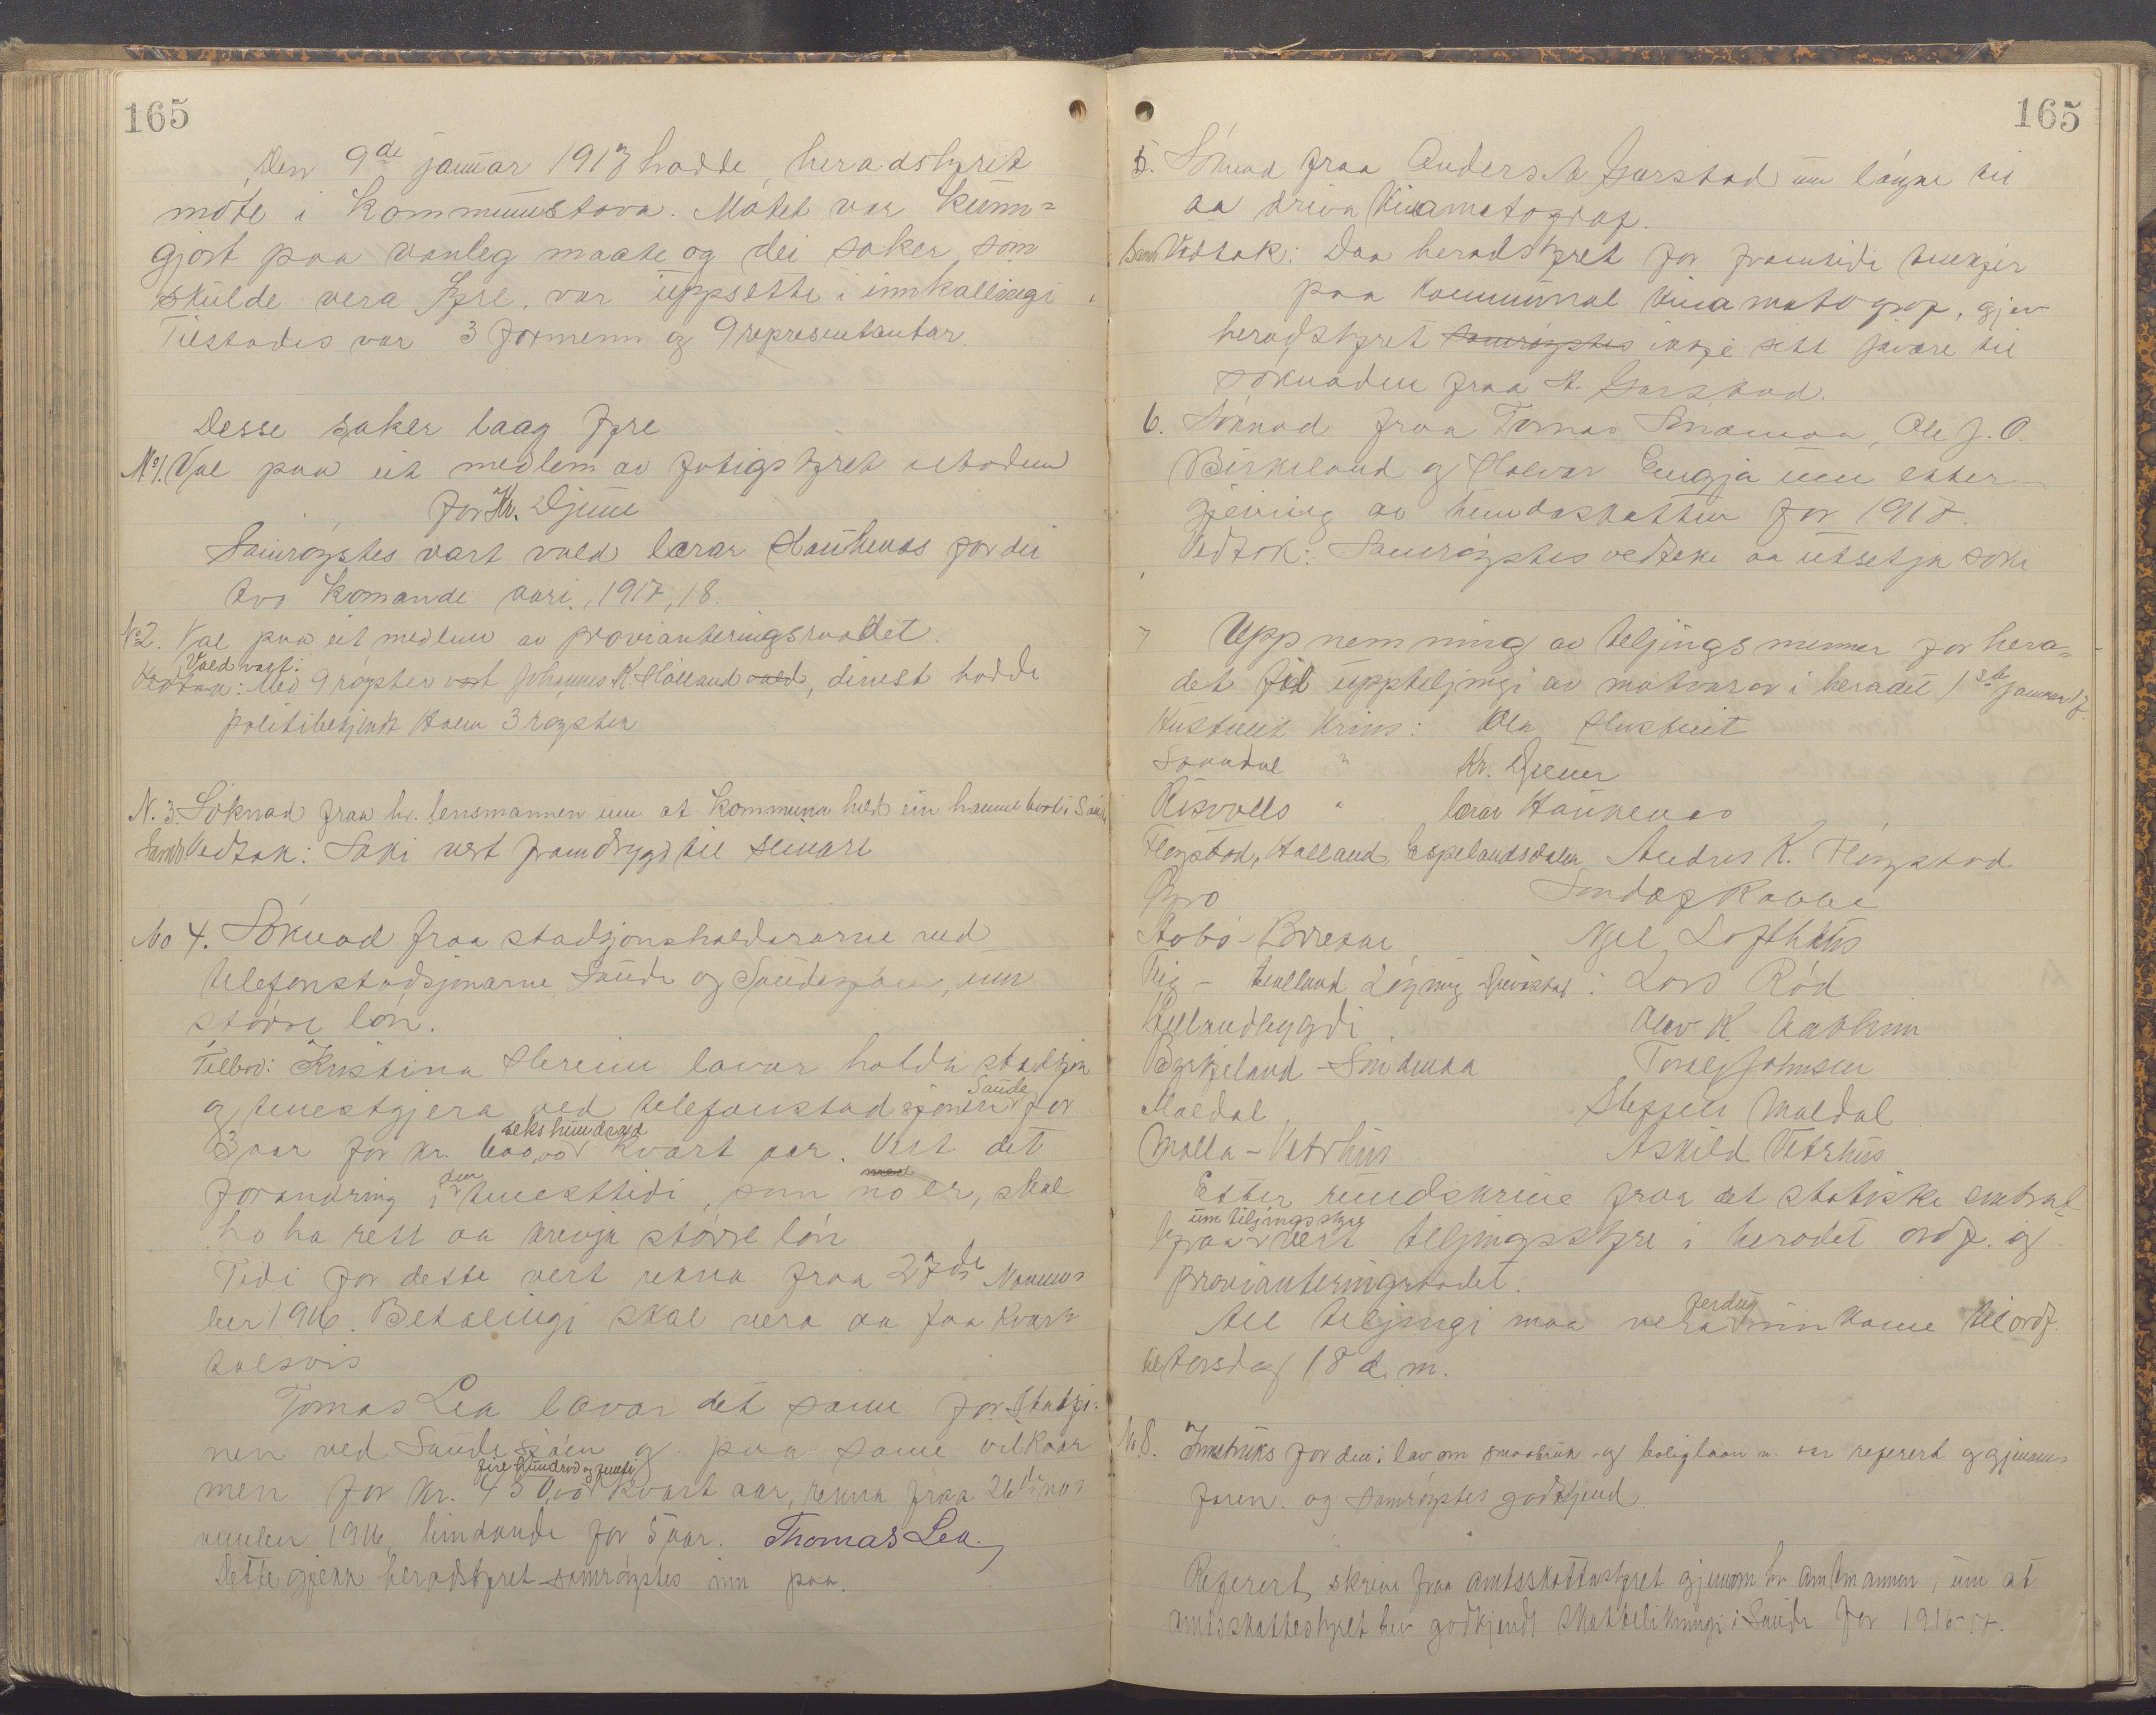 165
Den 9de januar 1917 hadde heradstyret
møte i Kommunestova. Møtet var kunn=
gjort paa vanleg maate og dei saker som
skulde vera fyre, var uppsette i innkallingi
Tilstades var 3 formenn og 9 representantar.
Desse saker laag fyre
No 1. Val paa eit medlem av fatigstyret istadenn
for Kr. Djuve
Samrøystes vart vald lærar Haukenæs for dei
tvo komande aari, 1917, 18.
No 2. Val paa eit medlem av provianteringsraadet.
Vald vart:
Vedtak: Med 9 røyster vart Johannes K. Halland vald, dinest hadde
politibetjent Holm 3 røyster
N. 3. Søknad fraa hr. lensmannen um at kommuna held ein
Samr. Vedtak: Saki vert framdrygd til seinare
No 4. Søknad fraa stadsjonshaldararne ved
telefonstadsjonarne Saude og Saudasjøen, um
større løn.
Tilbod: Kristina Hereim lovar halda stadsjon
og tenestgjera ved telefonstadsjonen Saude for
3 aar for kr. 600,00 sekshundrad kvart aar. Vert det
forandring i den tenesttidi, som no er, skal
ho ha rett aa krevja større løn
Tidi for dette vert rekna fraa 27de Novem=
ber 1916. Betalingi skal vera aa faa kvar=
talsvis
Tomas Lea lovar det same for Stadsjo=
nen ved Saudesjøen og paa same vilkaar
men for kr. 450,00 fire hundrad og femti kvart aar, rekna fraa 26de no=
vember 1916, bindande for 5 aar. Thomas Lea.
Dette gjekk heradstyret samrøystes inn paa.
165
5. Søknad fraa Anders A Garstad um løyve til
aa driva Kinamatograf.
Samr Vedtak: Daa heradstyret for framtidi tenkjer
paa kommunal kinamatograf, gjev
heradstyret samrøystes ikkje sitt jaære til
søknaden fraa A. Garstad.
6. Søknad fraa Tomas Sønamoa, Ole J. O.
Birkeland og Halvar Engja um etter-
gjeving av hundaskatten for 1917.
Vedtak: Samrøystes vedteke aa utsetja saki
7 Uppnemning av teljingsmenner for hera=
det til uppteljingi av matvaror i heradet 1ste januar 17.
Hustveit Krins: Ola Hustveit
Saudal " Kr. Djuve
Risvolls " lærar Haukenæs
Fløgstad, Halland, Espelandsdalen Andres K. Fløgstad
Øyro Sondaf Rabbe
Aabø - Brekke Njel Lofthus
Lars Rød
Hellandbygdi Olav K. Aarthun
Byrkjeland - Søndenaa Toralf Johnsen
Maldal Steffen Maldal
Molla - Vetrhus Askild Vetrhus
Etter rundskrive fraa det statiske sentral=
byraa um teljingsstyre vert teljingsstyre i heradet ordf. og
provianteringsraadet.
All teljingi maa vera ferdug innkome til ordf.
til torsdag 18 d. m.
No 8. Instruks for den i lov om smaabruk- og boliglaan n. var referert og gjenom=
faren. og samrøystes godkjend
Referert skrive fraa amtsskattastyret gjenom hr amtmannen, um at
amtsskattestyret hev godkjendt skattelikningi i Saude for 1916-17.